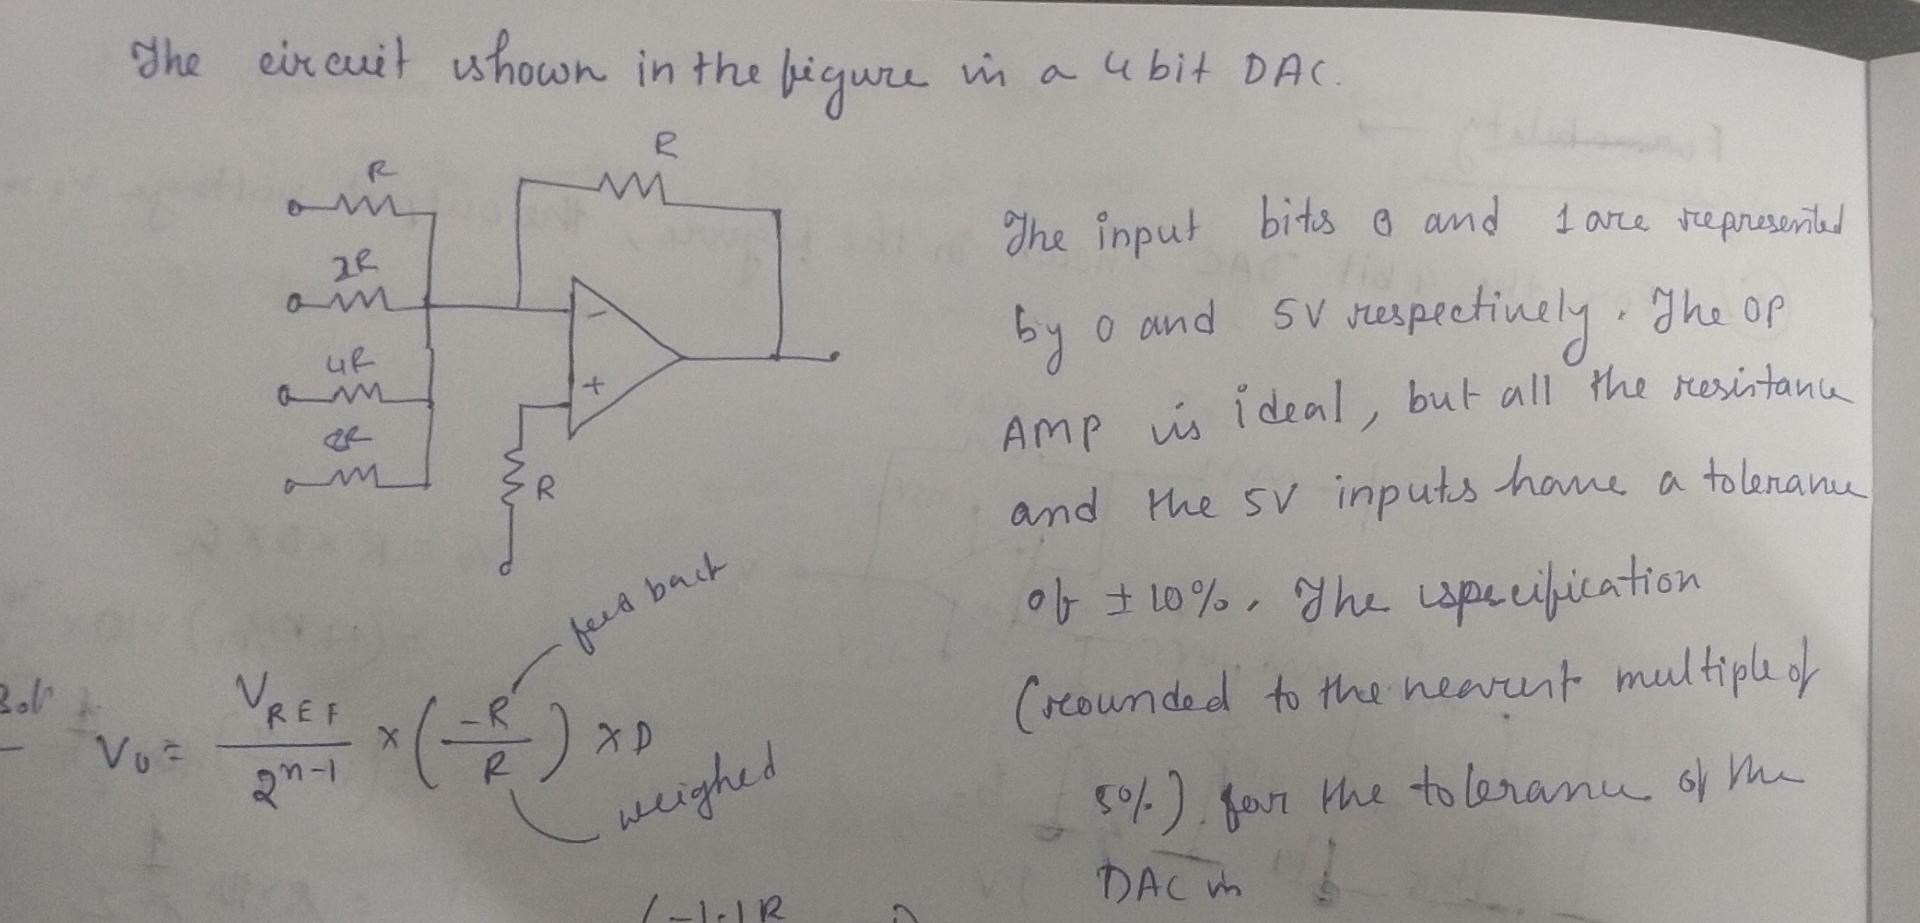 The circuit shown in the figure is a 4 bit DAC.
R
R
2R
4R
8R
−
+
R
The input bits 0 and 1 are represented
by 0 and 5V respectively. The OP
AMP is ideal, but all the resistance
and the 5V inputs have a tolerance
of ±10%. The specification
(rounded to the nearest multiple of
5%) for the tolerance of the
DAC is
feed back
Sol
V0 = VREF / 2^(n-1) × (-R / R) × D
weighed
(-1.1R